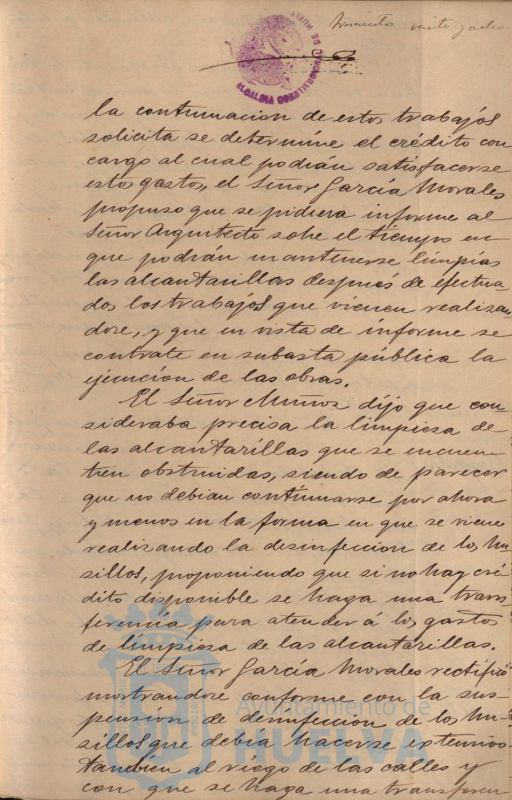 veinte y ocho
ALCALDIA CONSTITUCIONAL DE HUELVA
la continuacion de estos trabajos
solicita se determine el crédito con
cargo al cual podrán satisfacerse
estos gastos, el Señor García Morales
propuso que se pidiera informe al
Señor Arquitecto sobre el tiempo en
que podrán mantenerse limpias
las alcantarillas despues de efectua-
dos los trabajos que vienen realizan
dose, y que en vista de informe se
contrate en subasta pública la
ejecucion de las obras.
El Señor Muñoz dijo que con
sideraba precisa la limpieza de
las alcantarillas que se encuen-
tren obstruidas, siendo de parecer
que no debian continuarse por ahora
y menos en la forma en que se viene
realizando la desinfeccion de los hu-
sillos, proponiendo que si no hay cré-
dito disponible se haga una trans-
ferencia para atender á los gastos
de limpieza de las alcantarillas.
El Señor García Morales rectificó
mostrandose conforme con la sus-
pensión de desinfeccion de los hu-
sillos que debia hacerse extensivo
tambien al riego de las calles y
con que se haga una transferen-
Ayuntamiento de
HUELVA